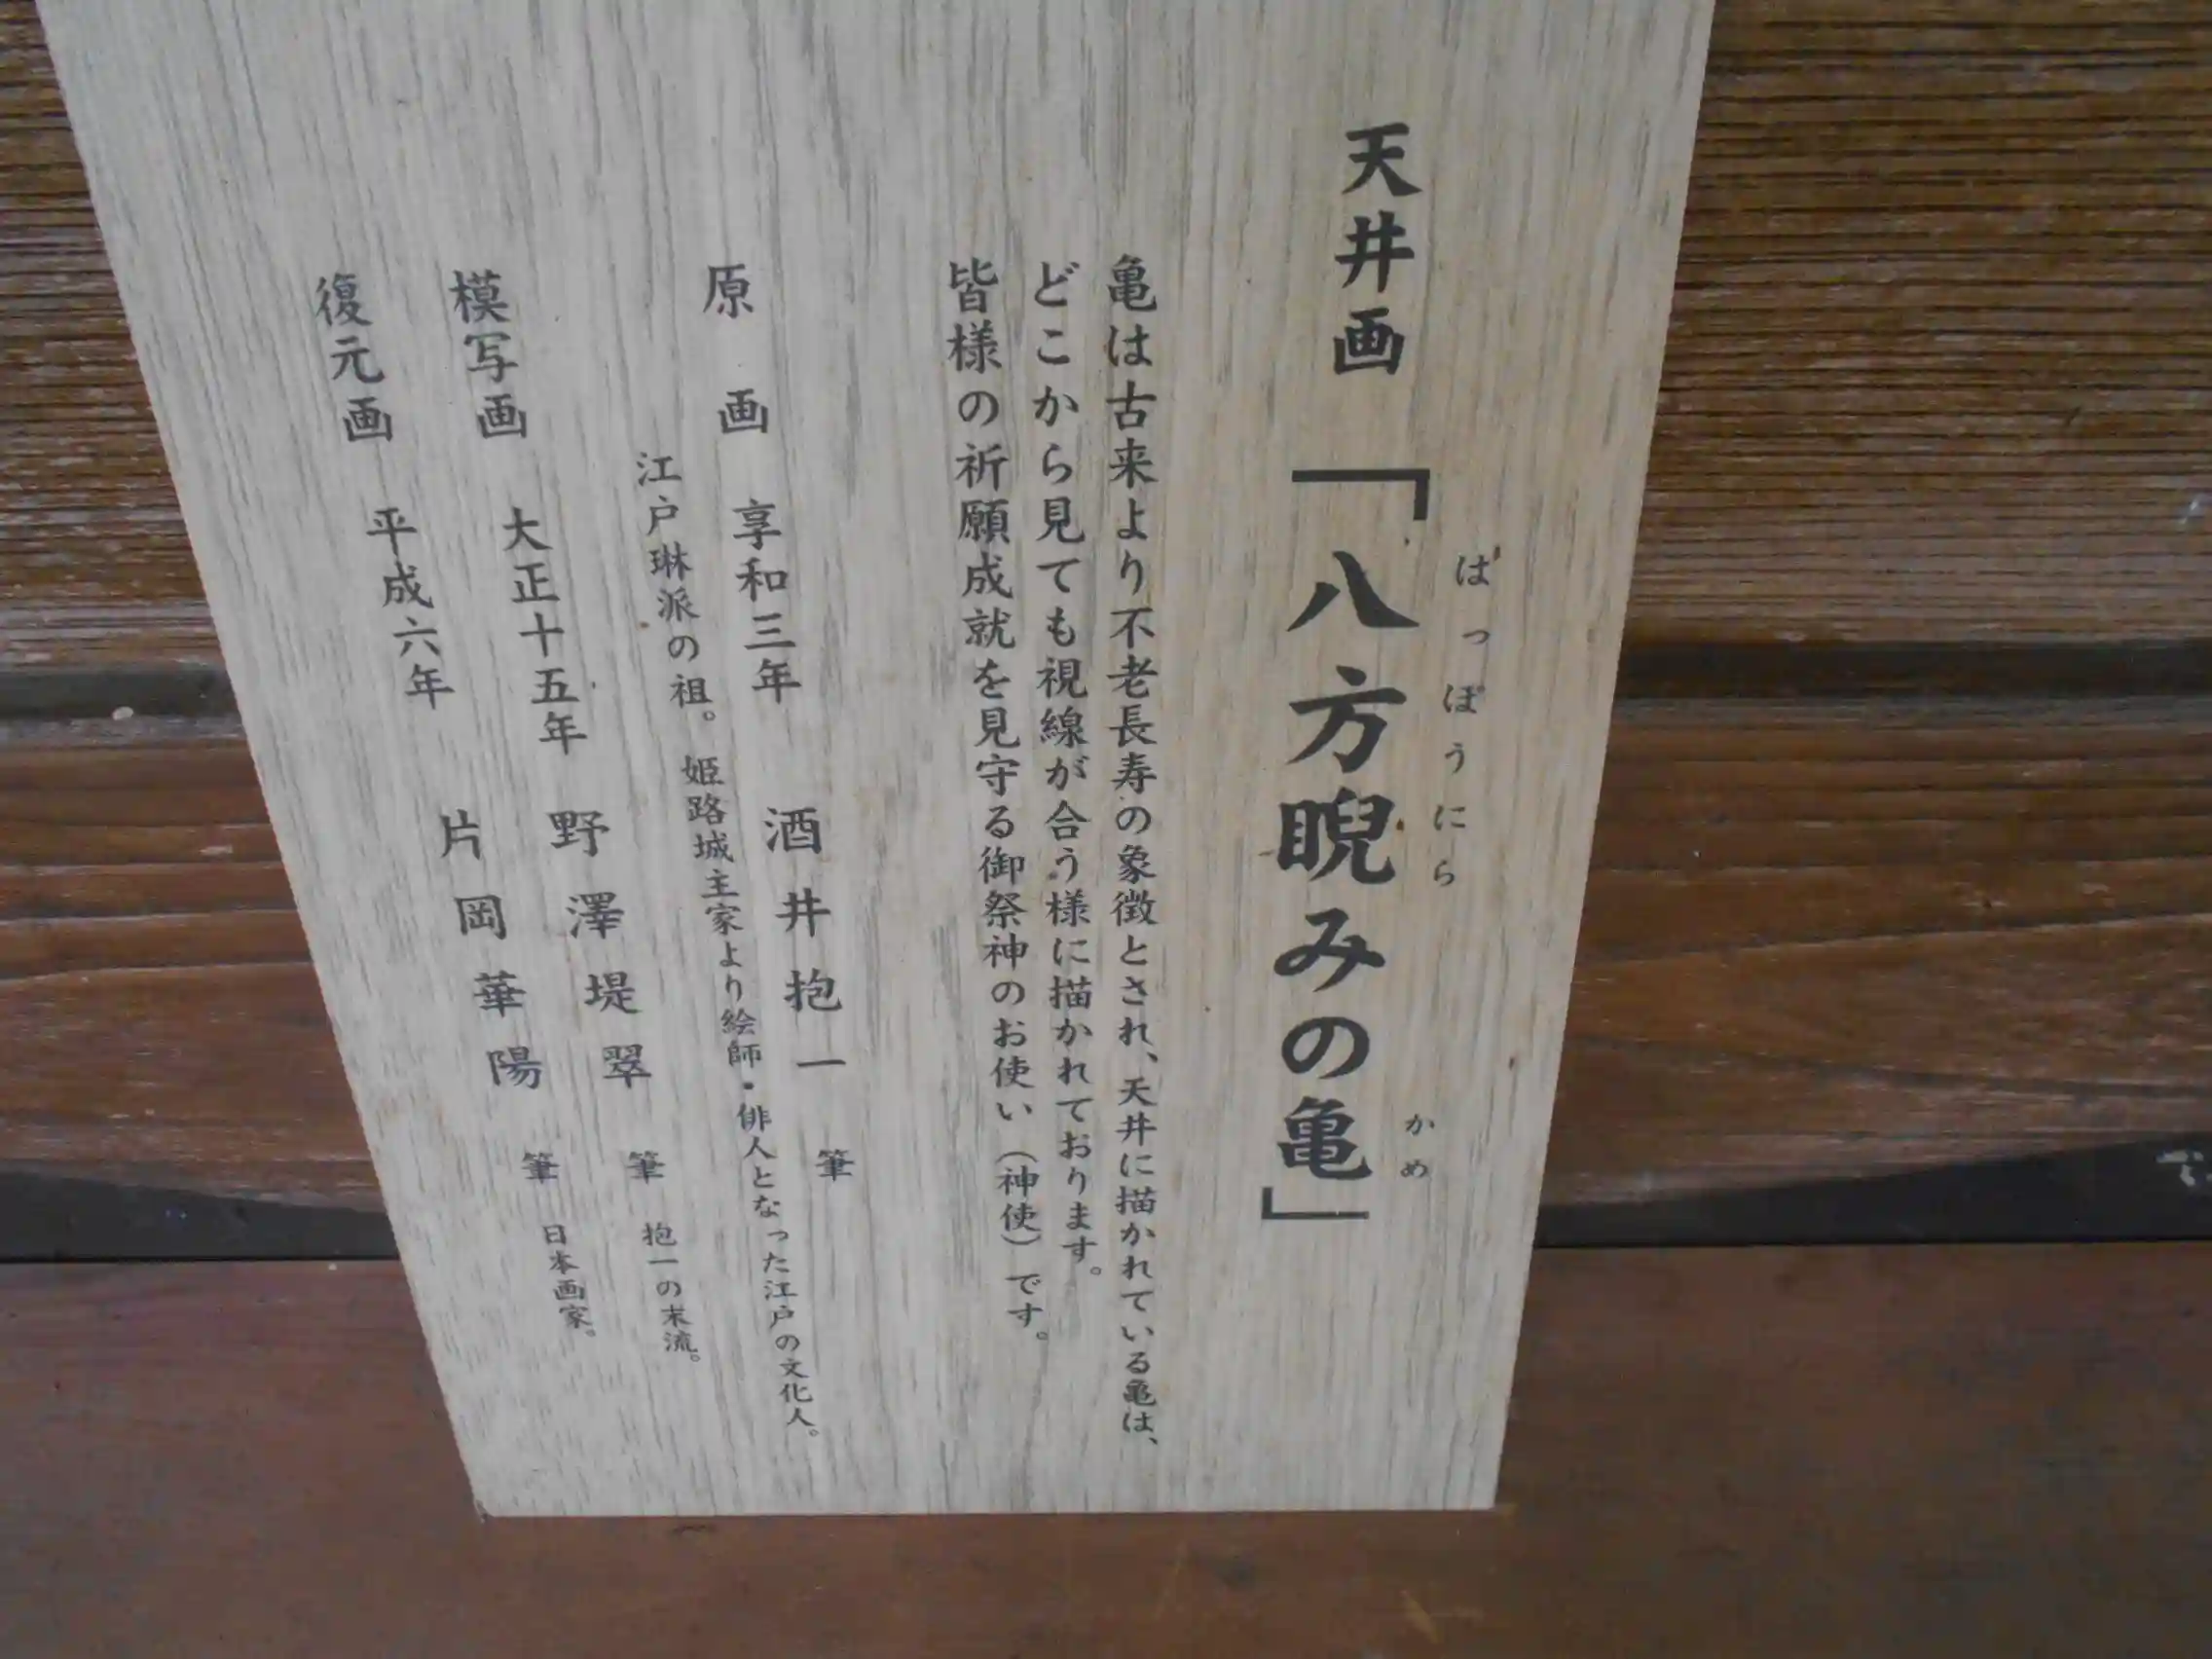 天井画「八方睨みの亀」
はっぽうにら
かめ
亀は古来より不老長寿の象徴とされ、天井に描かれている亀は、
どこから見ても視線が合う様に描かれております。
皆様の祈願成就を見守る御祭神のお使い（神使）です。
原画 享和三年 酒井抱一 筆
江戸琳派の祖。姫路城主家より絵師・俳人となった江戸の文化人。
模写画 大正十五年 野澤堤翠 筆 抱一の末流。
復元画 平成六年 片岡華陽 筆 日本画家。